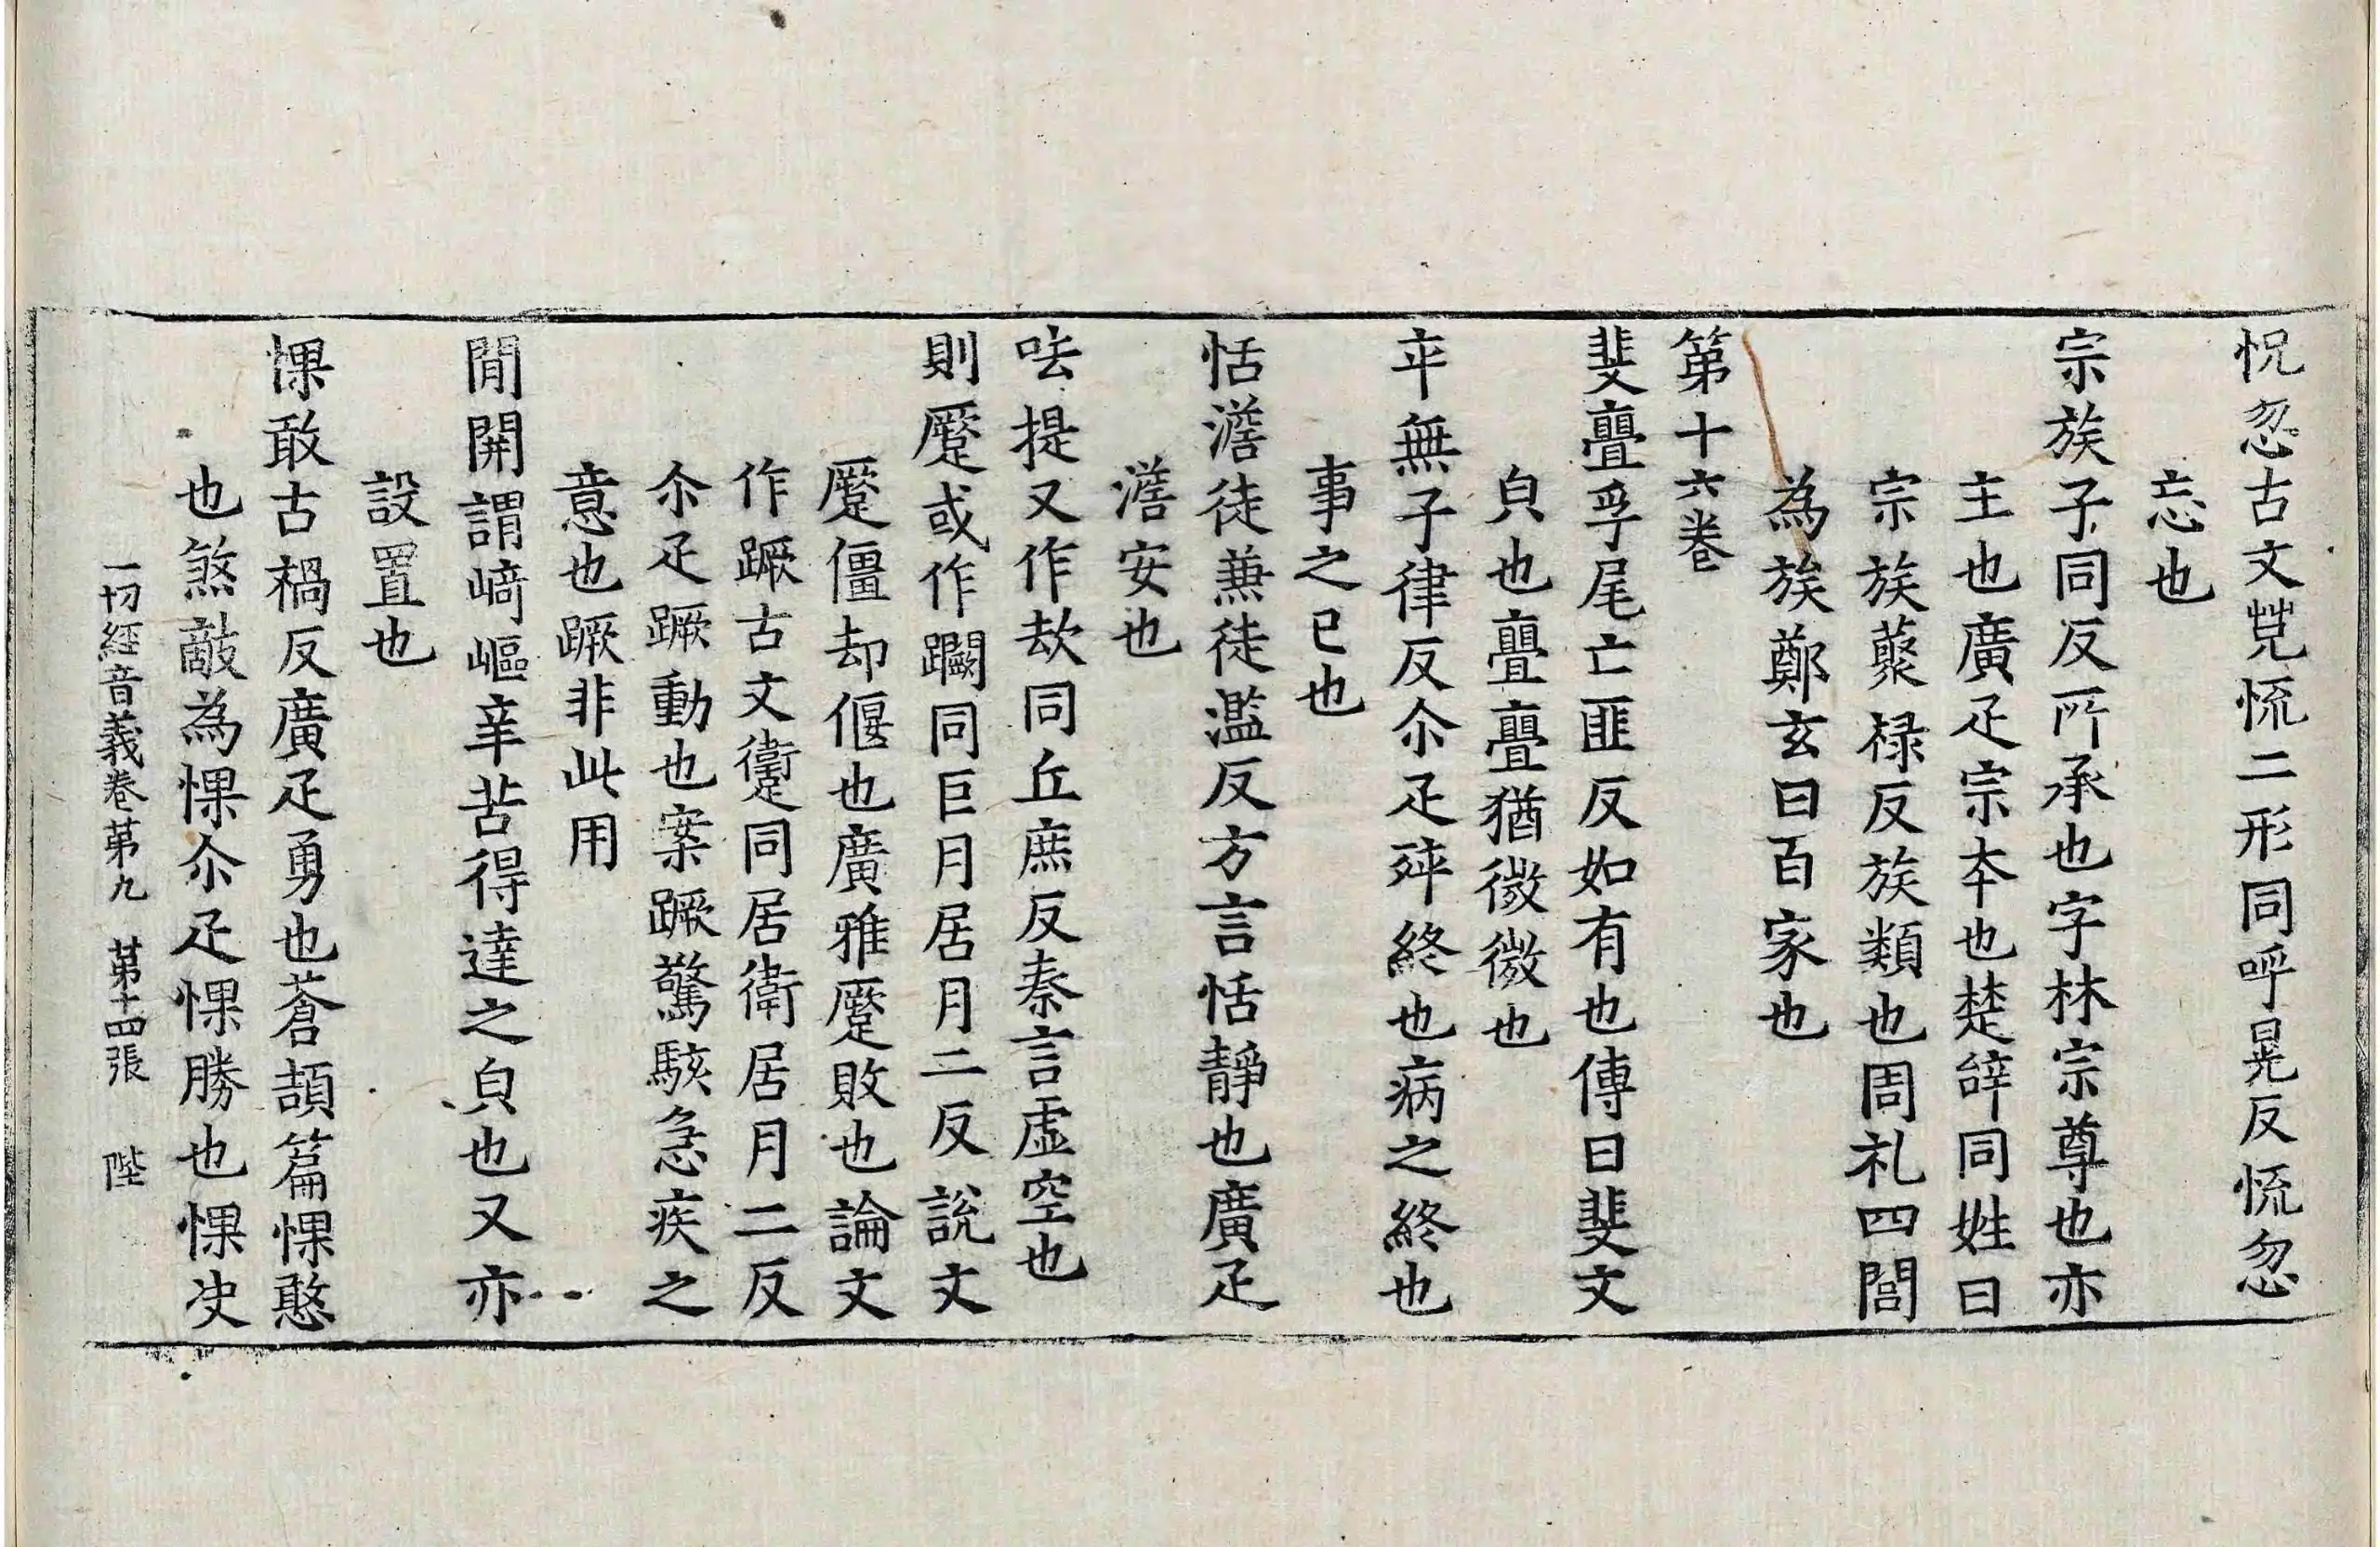 怳忽古文㡆慌二形同呼晃反慌忽
忘也
宗族子同反所承也字林宗尊也亦
主也廣疋宗夲也楚辝同姓曰
宗族藂禄反族類也周礼四閭
為族鄭玄曰百家也
第十六卷
斐亹孚尾亡匪反如有也傳曰斐文
皃也亹亹猶微微也
卒無子律反尒疋殚終也病之終也
事之已也
恬澹徒蒹徒濫反方言恬靜也廣疋
澹安也
呿提又作㰦同丘庶反秦言虛空也
則蹷或作躝同巨月居月二反說文
蹷僵却偃也廣雅蹷敗也論文
作蹶古文𧗸同居衛居月二反
尒疋蹶動也案蹶驚駭急疾之
意也蹶非此用
閒開謂﨑嶇辛苦得達之皃也又亦
設置也
惈敢古禍反廣疋勇也蒼頡篇惈憨
也煞敵為惈尒疋惈勝也惈决
一切經音義卷第九 第十四張 陛